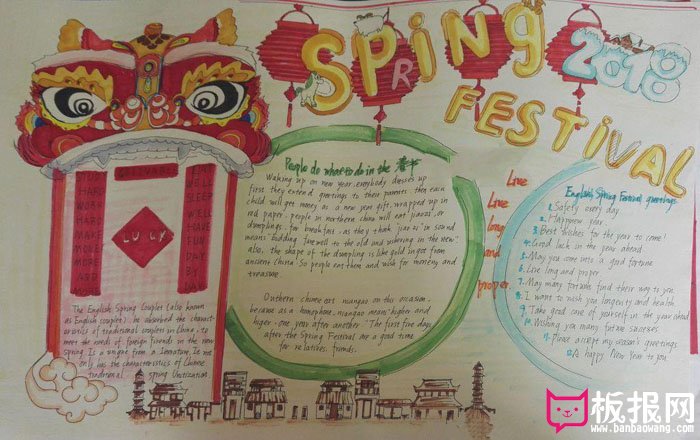 SPRiNG
FESTIVAL
2018
People do what to do in the 春节
Waking up on new year, everybody dresses up
first they extend greetings to their parents. then each
child will get money as a new year gift, wrapped up in
red paper. people in northern china will eat jiaozi, or
dumplings, for breakfast, as they think "jiaozi" in sound
means "bidding farewell to the old and ushering in the new".
also, the shape of the dumpling is like gold ingot from
ancient China. So people eat them and wish for money and
treasure.
Outhern chinese eat niangao on this occasion,
because as a homophone, niangao means "higher and
higher, one year after another." The first five days
after the Spring Festival are a good time
for relatives, friends.
Live
Live
Long
and
proper
English Spring Festival greetings
1. Safety every day
2. Happy new year
3. Best wishes for the year to come!
4. Good luck in the year ahead
5. May you come into a good fortune
6. Live long and proper
7. May many fortune find their way to you.
8. I want to wish you longevity and health
9. Take good care of yourself in the year ahead
10. Wishing you many future successes.
11. Please accept my season's greetings
12. A happy New Year to you.
HARD
WORK
HARD
MAKE
MONEY
MORE
AND
MORE
LUCKY
WELL
SLEEP
WELL
HAVE
FUN
DAY
BY
DAY
The English Spring Couplet (also known
as English couplet), he absorbed the charact-
eristics of traditional couplets in China, to
meet the needs of foreign friends in the new
spring. Is a unique from a literature. Is not
only has the characteristics of Chinese
traditional spring Unitization.
板报网
www.banbaowang.com